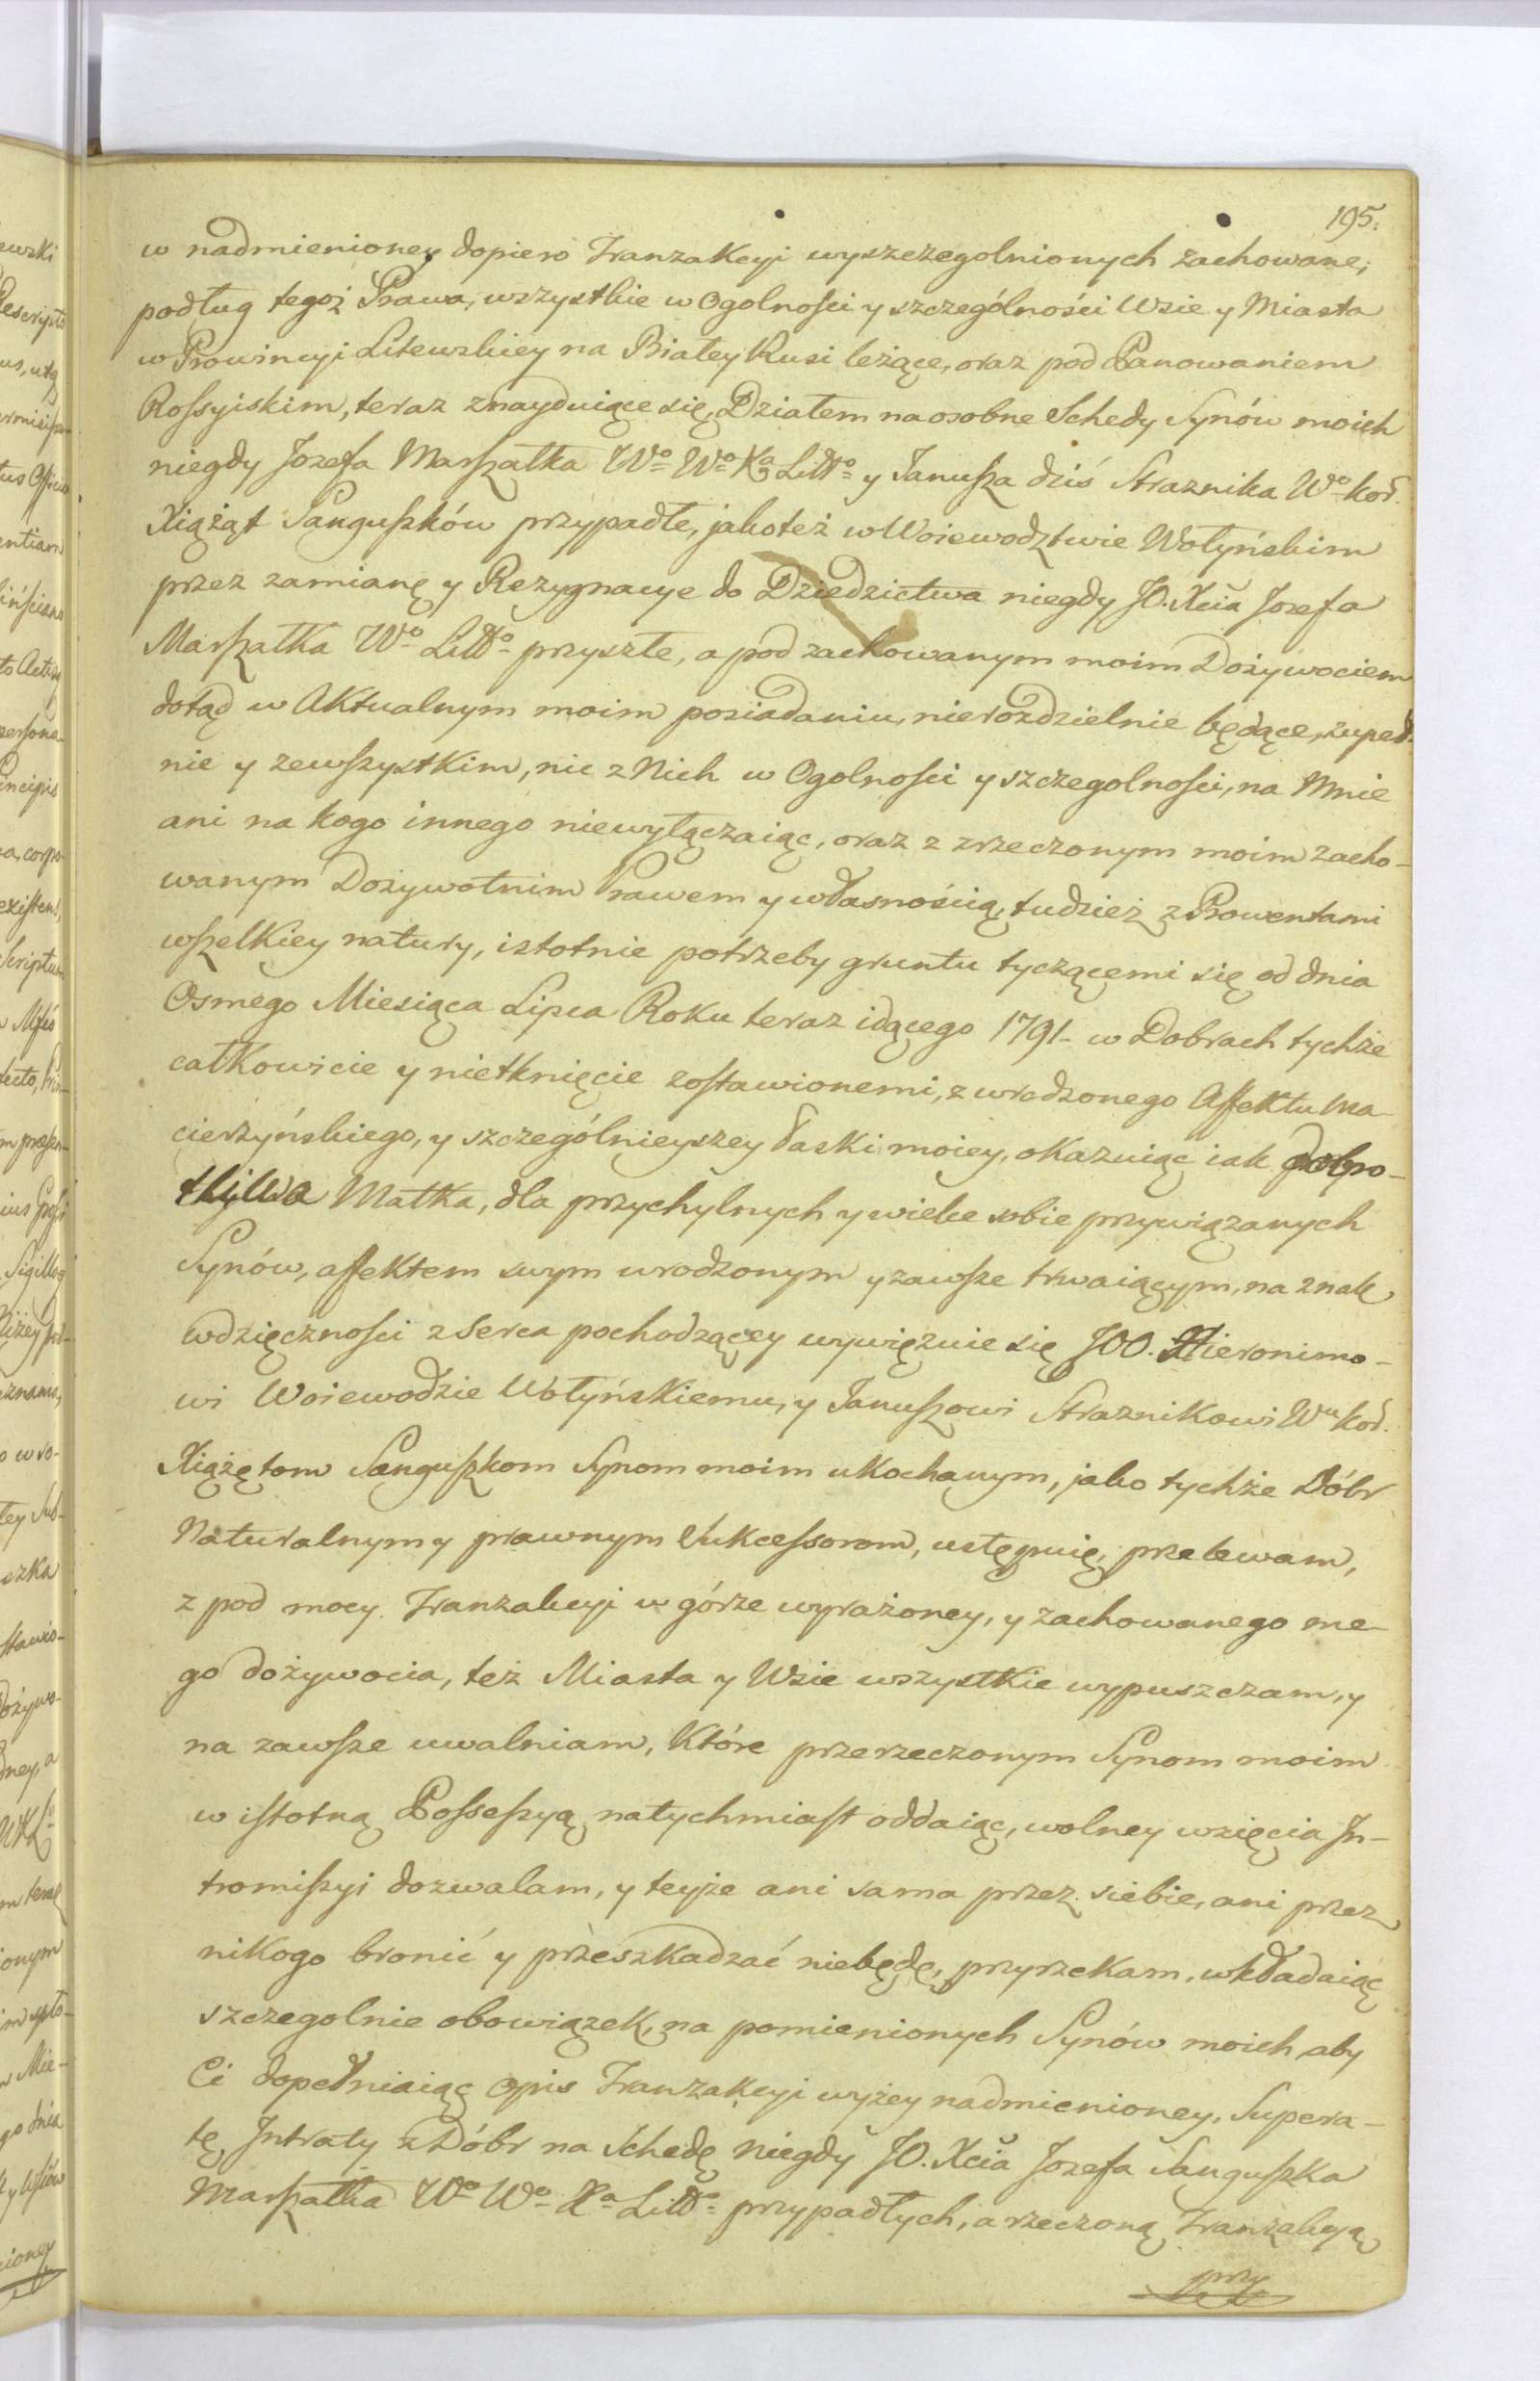 195.
w nadmienioney dopiero Tranzakcyi wyszczegolnionych zachowane,
podług tegoż Prawa, wszystkie w Ogolności y szczególności Wsie y Miasta
w Prowincyi Litewskiey na Białey Rusi leżące, oraz pod Panowaniem
Rossyiskim, teraz znayduiące się, Działem na osobne Schedy Synów moich
niegdy Jozefa Marszałka Wo Wo Xa Litto y Janusza dziś Straznika Wo Kor.
Xiążąt Sanguszków przypadłe, jako też w Woiewodztwie Wołyńskim
przez zamianę y Rezygnacye do Dziedzictwa niegdy JO. Xcia Jozefa
Marszałka Wo Litto przyszłe, a pod zachowanym moim Dożywociem
dotąd w Aktualnym moim posiadaniu, nierozdzielnie będące, zupeł-
nie y zewszystkim, nic z Nich w Ogolności y szczegolności, na Mnie
ani na kogo innego niewyłączaiąc, oraz z zrzeczonym moim zacho-
wanym Dożywotnim Prawem y własnością, tudzież z Prowentami
wszelkiey natury, istotnie potrzeby gruntu tyczącemi się od dnia
Osmego Miesiąca Lipca Roku teraz idącego 1791- w Dobrach tychże
całkowicie y nietknięcie zostawionemi, z wrodzonego Affektu Ma-
cierzyńskiego, y szczególnieyszey łaski moiey, okazuiąc iak
Matka, dla przychylnych y wielce sobie przywiązanych
Synów, affektem swym wrodzonym y zawsze trwaiącym, na znak
wdzięczności z serca pochodzącey wywięzuie się JOO. Hieronimo-
wi Woiewodzie Wołyńskiemu, y Januszowi Straznikowi Wu Kor.
Xiążętom Sanguszkom Synom moim ukochanym, jako tychże Dóbr
Naturalnym y prawnym Sukcessorom, ustępuię, przelewam,
z pod mocy Tranzakcyi w górze wyrażoney, y zachowanego me-
go dożywocia, też Miasta y Wsie wszystkie wypuszczam, y
na zawsze uwalniam, Które przerzeczonym Synom moim
w istotną Possessyą natychmiast oddaiąc, wolney wzięcia In-
tromissyi dozwalam, y teyże ani sama przez siebie, ani przez
nikogo bronić y przeszkadzać niebędę, przyrzekam, wkładaiąc
szczegolnie obowiązek, na pomienionych Synów moich, aby
Ci dopełniaiąc opis Tranzakcyi wyżey nadmienioney, Supera-
tę Intraty z Dóbr na Schedę niegdy JO. Xcia Jozefa Sanguszka
Marszałka Wo Wo Xa Litto przypadłych, a rzeczoną Tranzakcyą
przy